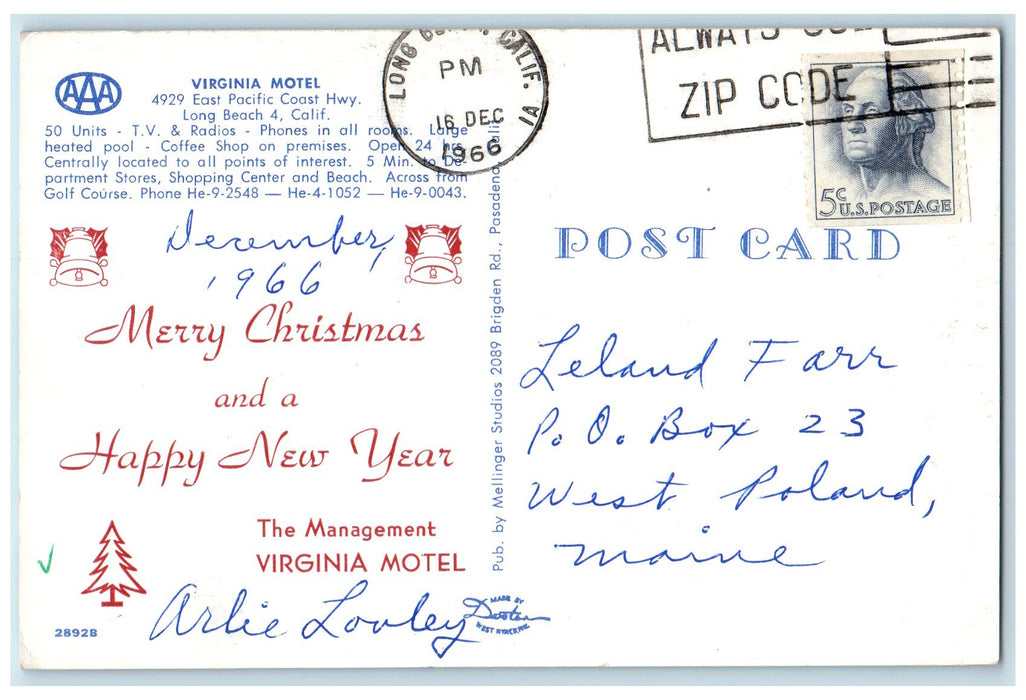 AAA
VIRGINIA MOTEL
4929 East Pacific Coast Hwy.
Long Beach 4, Calif.
50 Units - T.V. & Radios - Phones in all rooms. Large
heated pool - Coffee Shop on premises. Open 24 hrs.
Centrally located to all points of interest. 5 Min. to De-
partment Stores, Shopping Center and Beach. Across from
Golf Course. Phone He-9-2548 — He-4-1052 — He-9-0043.
December,
1966
Merry Christmas
and a
Happy New Year
The Management
VIRGINIA MOTEL
Arlie Looley
2892B
Pub. by Mellinger Studios 2089 Brigden Rd., Pasadena, Calif.
MADE BY
Dexter
WEST NYACK, N.Y.
LONG CALIF.
PM
16 DEC
1966
ALWAYS
ZIP CODE
5c
U.S. POSTAGE
POST CARD
Leland Farr
P. O. Box 23
West Poland,
Maine